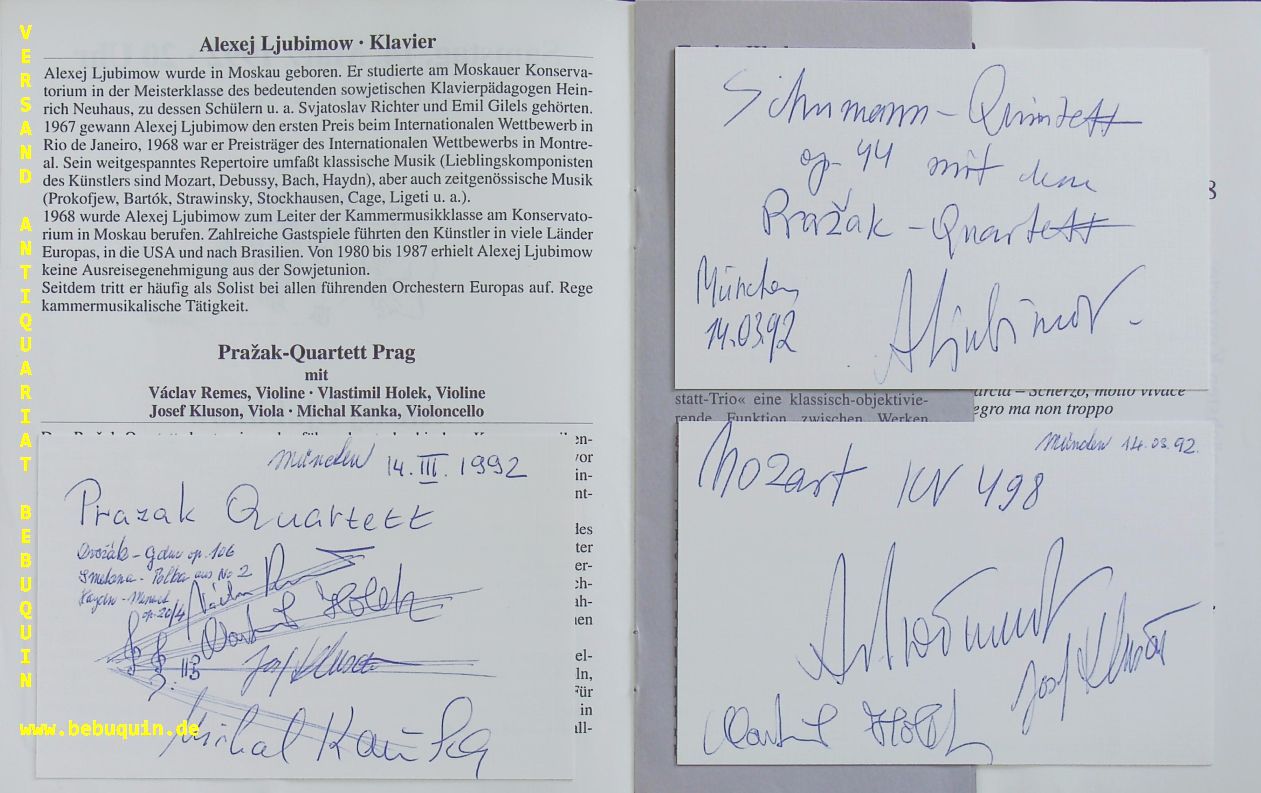 VERSAND ANTIQUARIAT BEBUQUIN
www.bebuquin.de
Alexej Ljubimow · Klavier
Alexej Ljubimow wurde in Moskau geboren. Er studierte am Moskauer Konserva-
torium in der Meisterklasse des bedeutenden sowjetischen Klavierpädagogen Hein-
rich Neuhaus, zu dessen Schülern u. a. Svjatoslav Richter und Emil Gilels gehörten.
1967 gewann Alexej Ljubimow den ersten Preis beim Internationalen Wettbewerb in
Rio de Janeiro, 1968 war er Preisträger des Internationalen Wettbewerbs in Montre-
al. Sein weitgespanntes Repertoire umfaßt klassische Musik (Lieblingskomponisten
des Künstlers sind Mozart, Debussy, Bach, Haydn), aber auch zeitgenössische Musik
(Prokofjew, Bartók, Strawinsky, Stockhausen, Cage, Ligeti u. a.).
1968 wurde Alexej Ljubimow zum Leiter der Kammermusikklasse am Konservato-
rium in Moskau berufen. Zahlreiche Gastspiele führten den Künstler in viele Länder
Europas, in die USA und nach Brasilien. Von 1980 bis 1987 erhielt Alexej Ljubimow
keine Ausreisegenehmigung aus der Sowjetunion.
Seitdem tritt er häufig als Solist bei allen führenden Orchestern Europas auf. Rege
kammermusikalische Tätigkeit.
Pražak-Quartett Prag
mit
Václav Remes, Violine · Vlastimil Holek, Violine
Josef Kluson, Viola · Michal Kanka, Violoncello
München 14. III. 1992
Prazak Quartett
Dvořák - G dur op. 106
Smetana - Polka aus No 2
Haydn - Menuet
op. 20/4
Josef Kluson
Michal Kaňka
Schumann - Quintett
op. 44 mit dem
Pražak - Quartett
München
14.03.92
A Ljubimov
statt-Trio« eine klassisch-objektivie-
rende Funktion zwischen Werken
Scherzo, molto vivace
egro ma non troppo
München 14.03.92.
Mozart KV 498
Josef Kluson
Holek